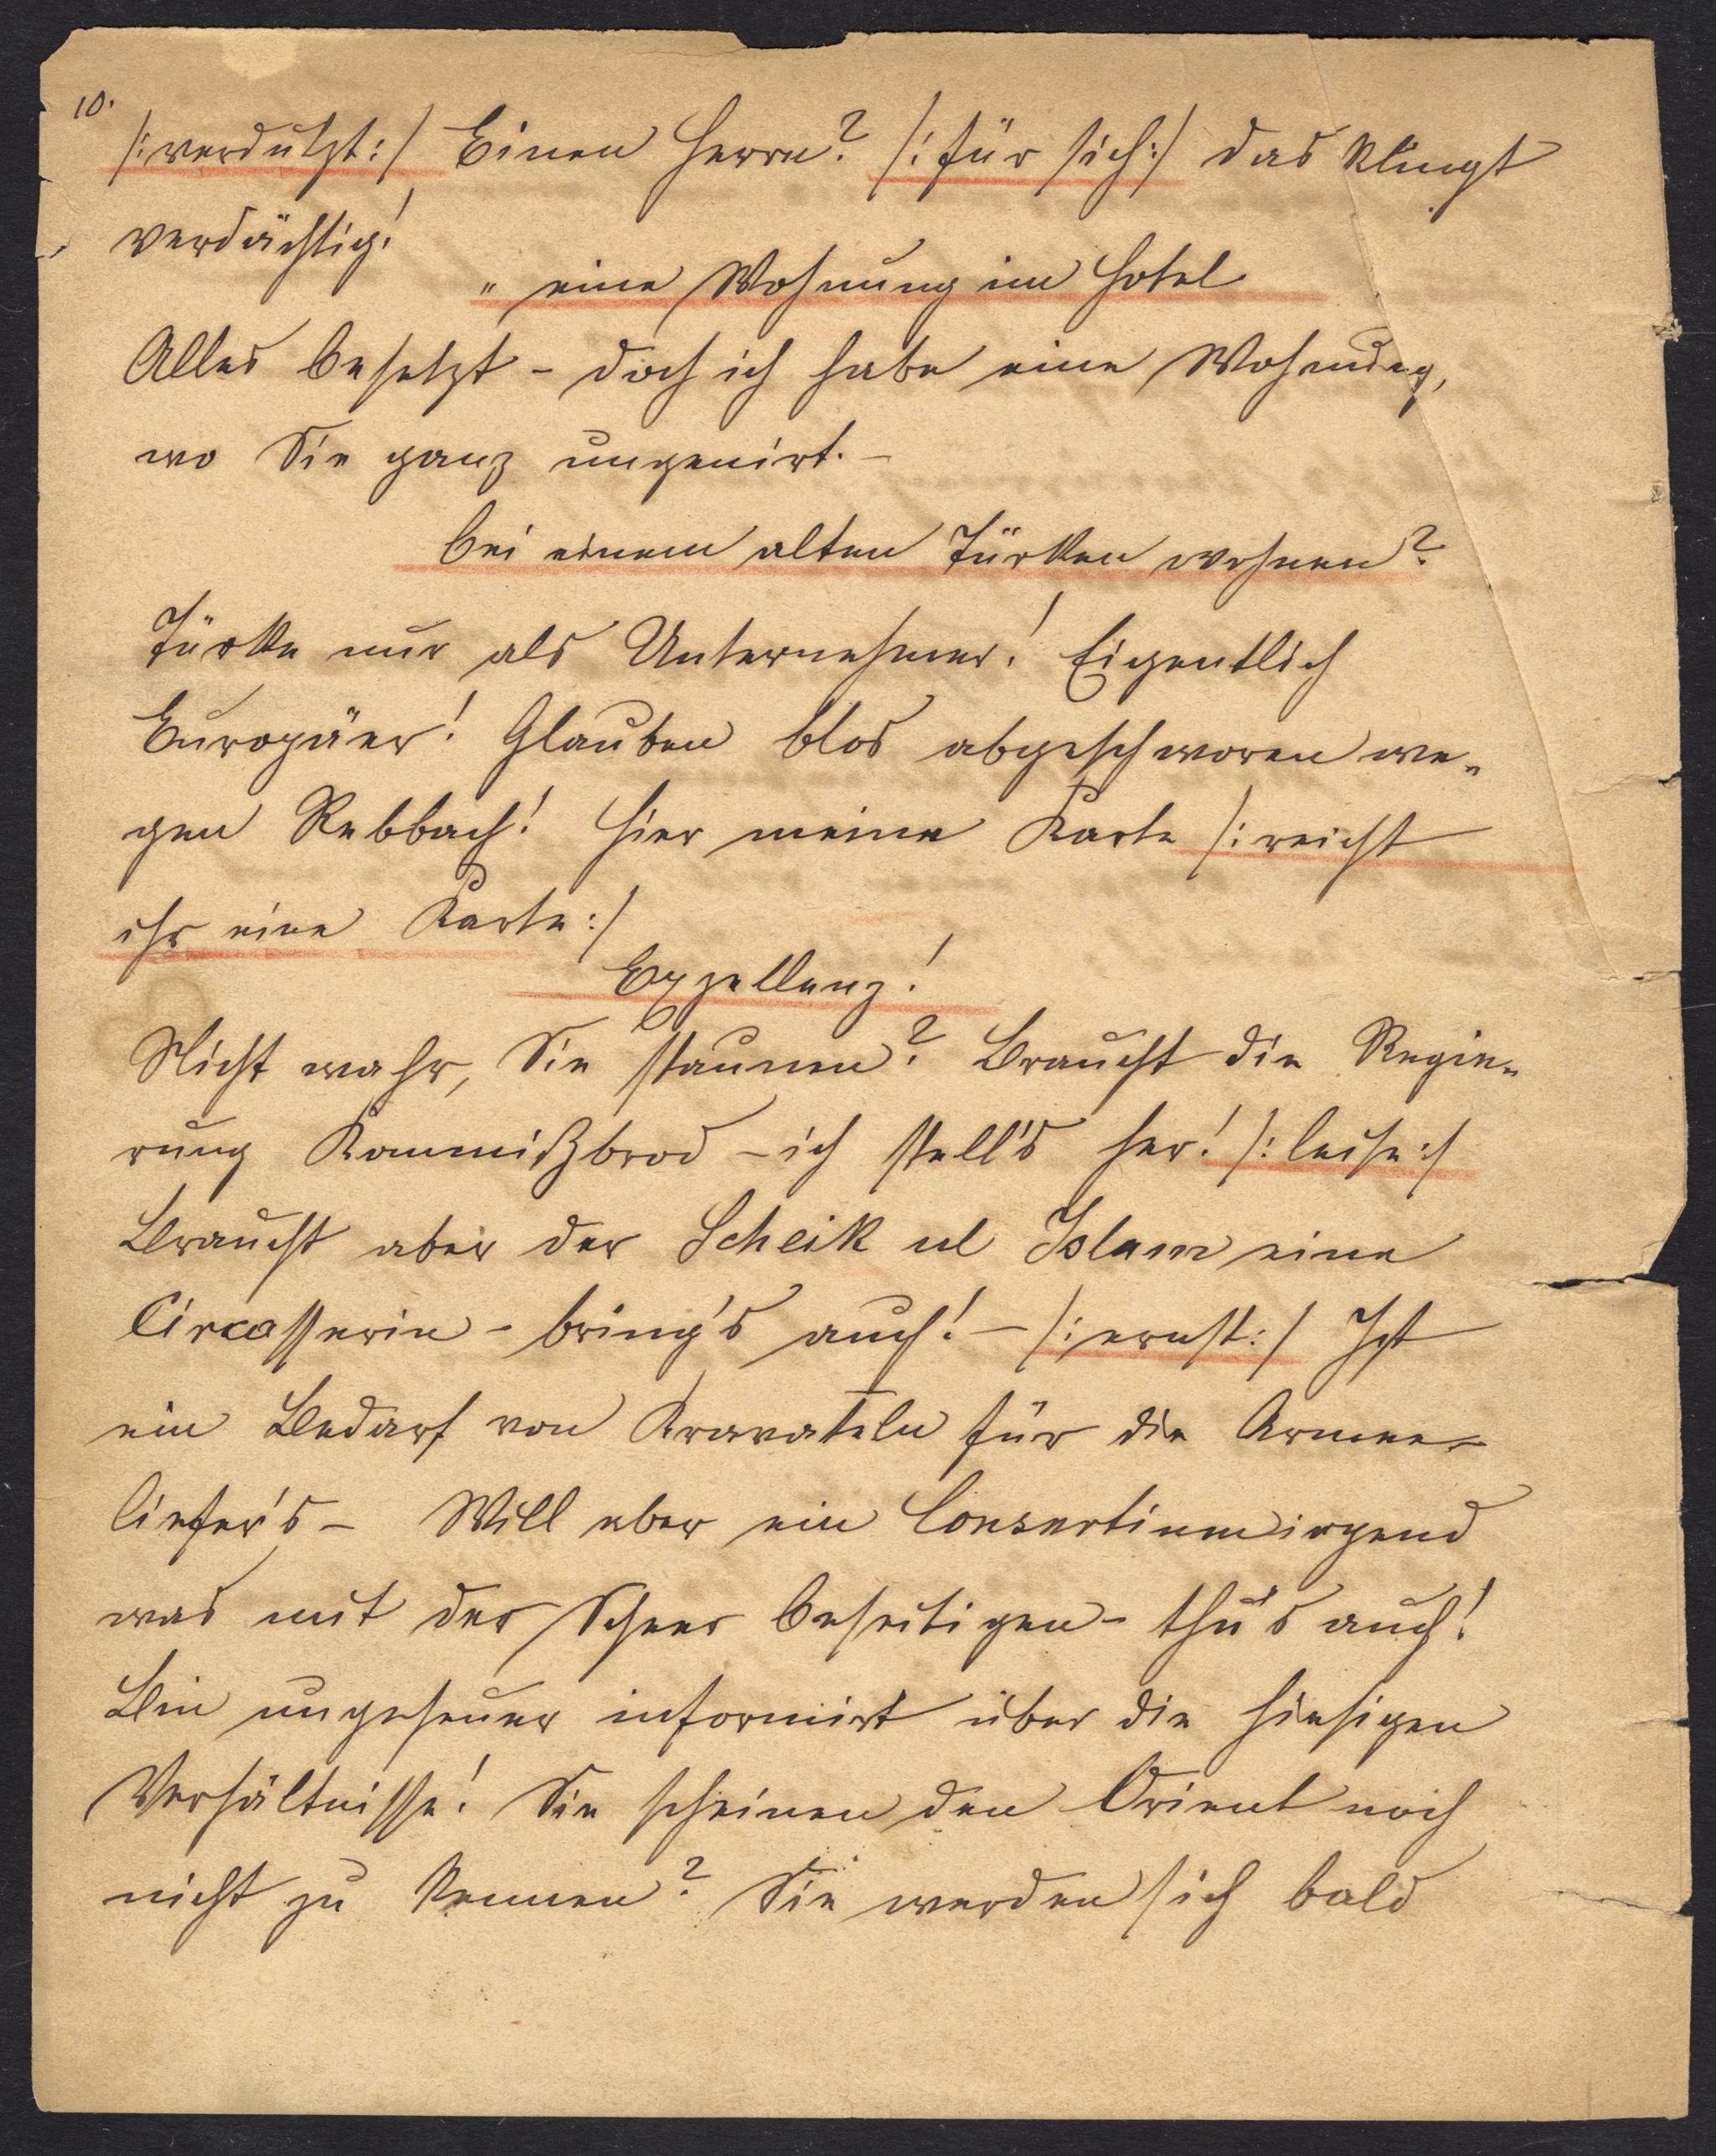 10.
/: verdutzt :/ Einen Herrn? /: für sich :/ das klingt
verdächtig!
" eine Wohnung im Hotel
Alles besetzt - doch ich habe eine Wohnung,
wo Sie ganz ungenirt. -
bei einem alten Türken wohnen?
Türke nur als Unternehmer! Eigentlich
Europäer! Glauben blos abgeschworen we-
gen Rebbach! Hier meine Karte /: reicht
ihr eine Karte :/
Exzellenz!
Nicht wahr, Sie staunen? Braucht die Regie-
rung Kommißbrod - ich stell's her! /: leise :/
Braucht aber der Scheik ul Islam eine
Circasserin - bring's auch! - /: ernst :/ Ist
ein Bedarf von Kravateln für die Armee -
liefer's - Will aber ein Consortium irgend
was mit der Scheer beseitigen - thu's auch!
Bin ungeheuer informirt über die hiesigen
Verhältnisse! Sie scheinen den Orient noch
nicht zu kennen? Sie werden sich bald